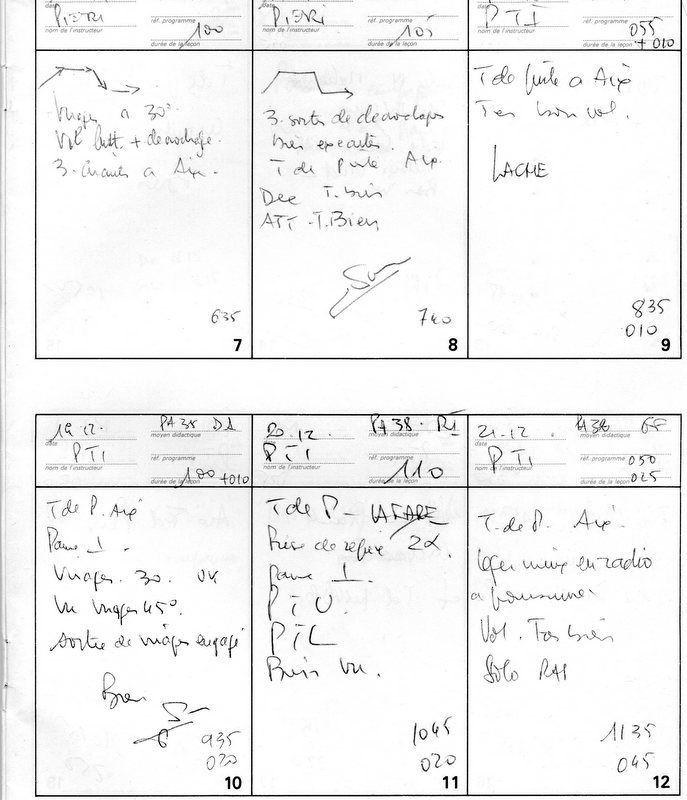 date
PIERI
nom de l'instructeur
réf. programme
100
durée de la leçon
Virages à 30°
Vol lent + décrochage.
3. à Aix.
635
7
PIERI
nom de l'instructeur
réf. programme
105
durée de la leçon
3. sortie de décrochages
bien executés.
T de Piste Aix.
Dec T. bien
ATT - T. Bien
740
8
date
PTI
nom de l'instructeur
réf. programme
055
durée de la leçon
+ 010
T de piste a Aix
Tres bon vol.
LACHE
835
010
9
19.12.
date
PA38 D1
moyen didactique
PTI
nom de l'instructeur
réf. programme
100 +010
durée de la leçon
T de P. Aix
Panne 1.
Virages. 30. vu
Vu Virages 45°.
sortie de virages engagé
Bien
935
020
10
20.12.
date
PA38. RI
moyen didactique
PTI
nom de l'instructeur
réf. programme
110
durée de la leçon
T de P - LAFARE
Prise de 2α.
Panne 1.
PTU.
PTL
Bien vu.
1045
020
11
21-12.
date
PA38 GF
moyen didactique
PTI
nom de l'instructeur
réf. programme
050
025
durée de la leçon
T. de P. Aix.
leger mieux en radio
a poursuivre
Vol. Tres bien
Solo RAS
1135
045
12